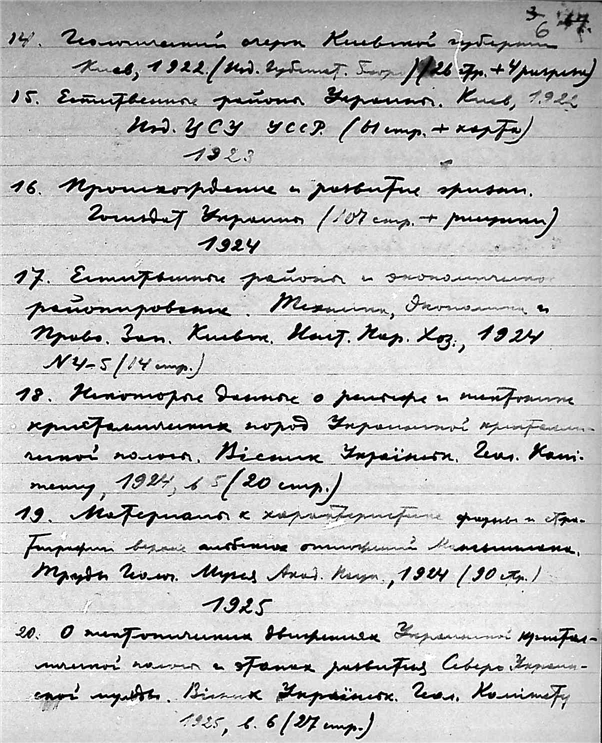 6
14. Геологический очерк Киевской губернии
Киев, 1922. (Изд. Губстат. Бюро) (26 стр. + 4 разреза)
15. Естественные районы Украины. Киев, 1922
Изд. ЦСУ УССР. (61 стр. + карта)
1923
16. Происхождение и развитие жизни.
Госиздат Украины (107 стр. + рисунки)
1924
17. Естественные районы и экономическое
районирование. Техника, Экономика и
Право. Зап. Киевск. Инст. Нар. Хоз., 1924
N 4-5 (14 стр.)
18. Некоторые данные о рельефе и тектонике
кристаллических пород Украинской кристалли-
ческой полосы. Вісник Українськ. Геол. Комі-
тету, 1924, в 5 (20 стр.)
19. Материалы к характеристике фауны и стра-
тиграфии верхне альбских отложений
Труды Геол. Музея Акад. Наук., 1924 (90 стр.)
1925
20. О тектонических движениях Украинской кристал-
лической полосы и этапах развития Северо Украин-
ской мульды. Вісник Українськ. Геол. Комітету
1925, в. 6 (27 стр.)